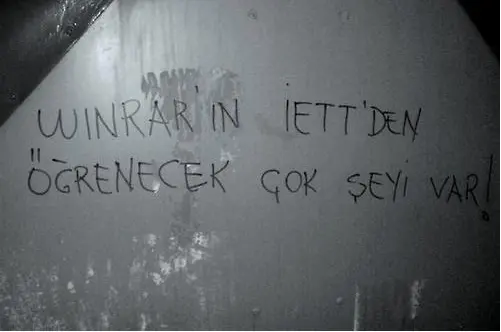 WINRAR'IN İETT'DEN
ÖĞRENECEK ÇOK ŞEYİ VAR!